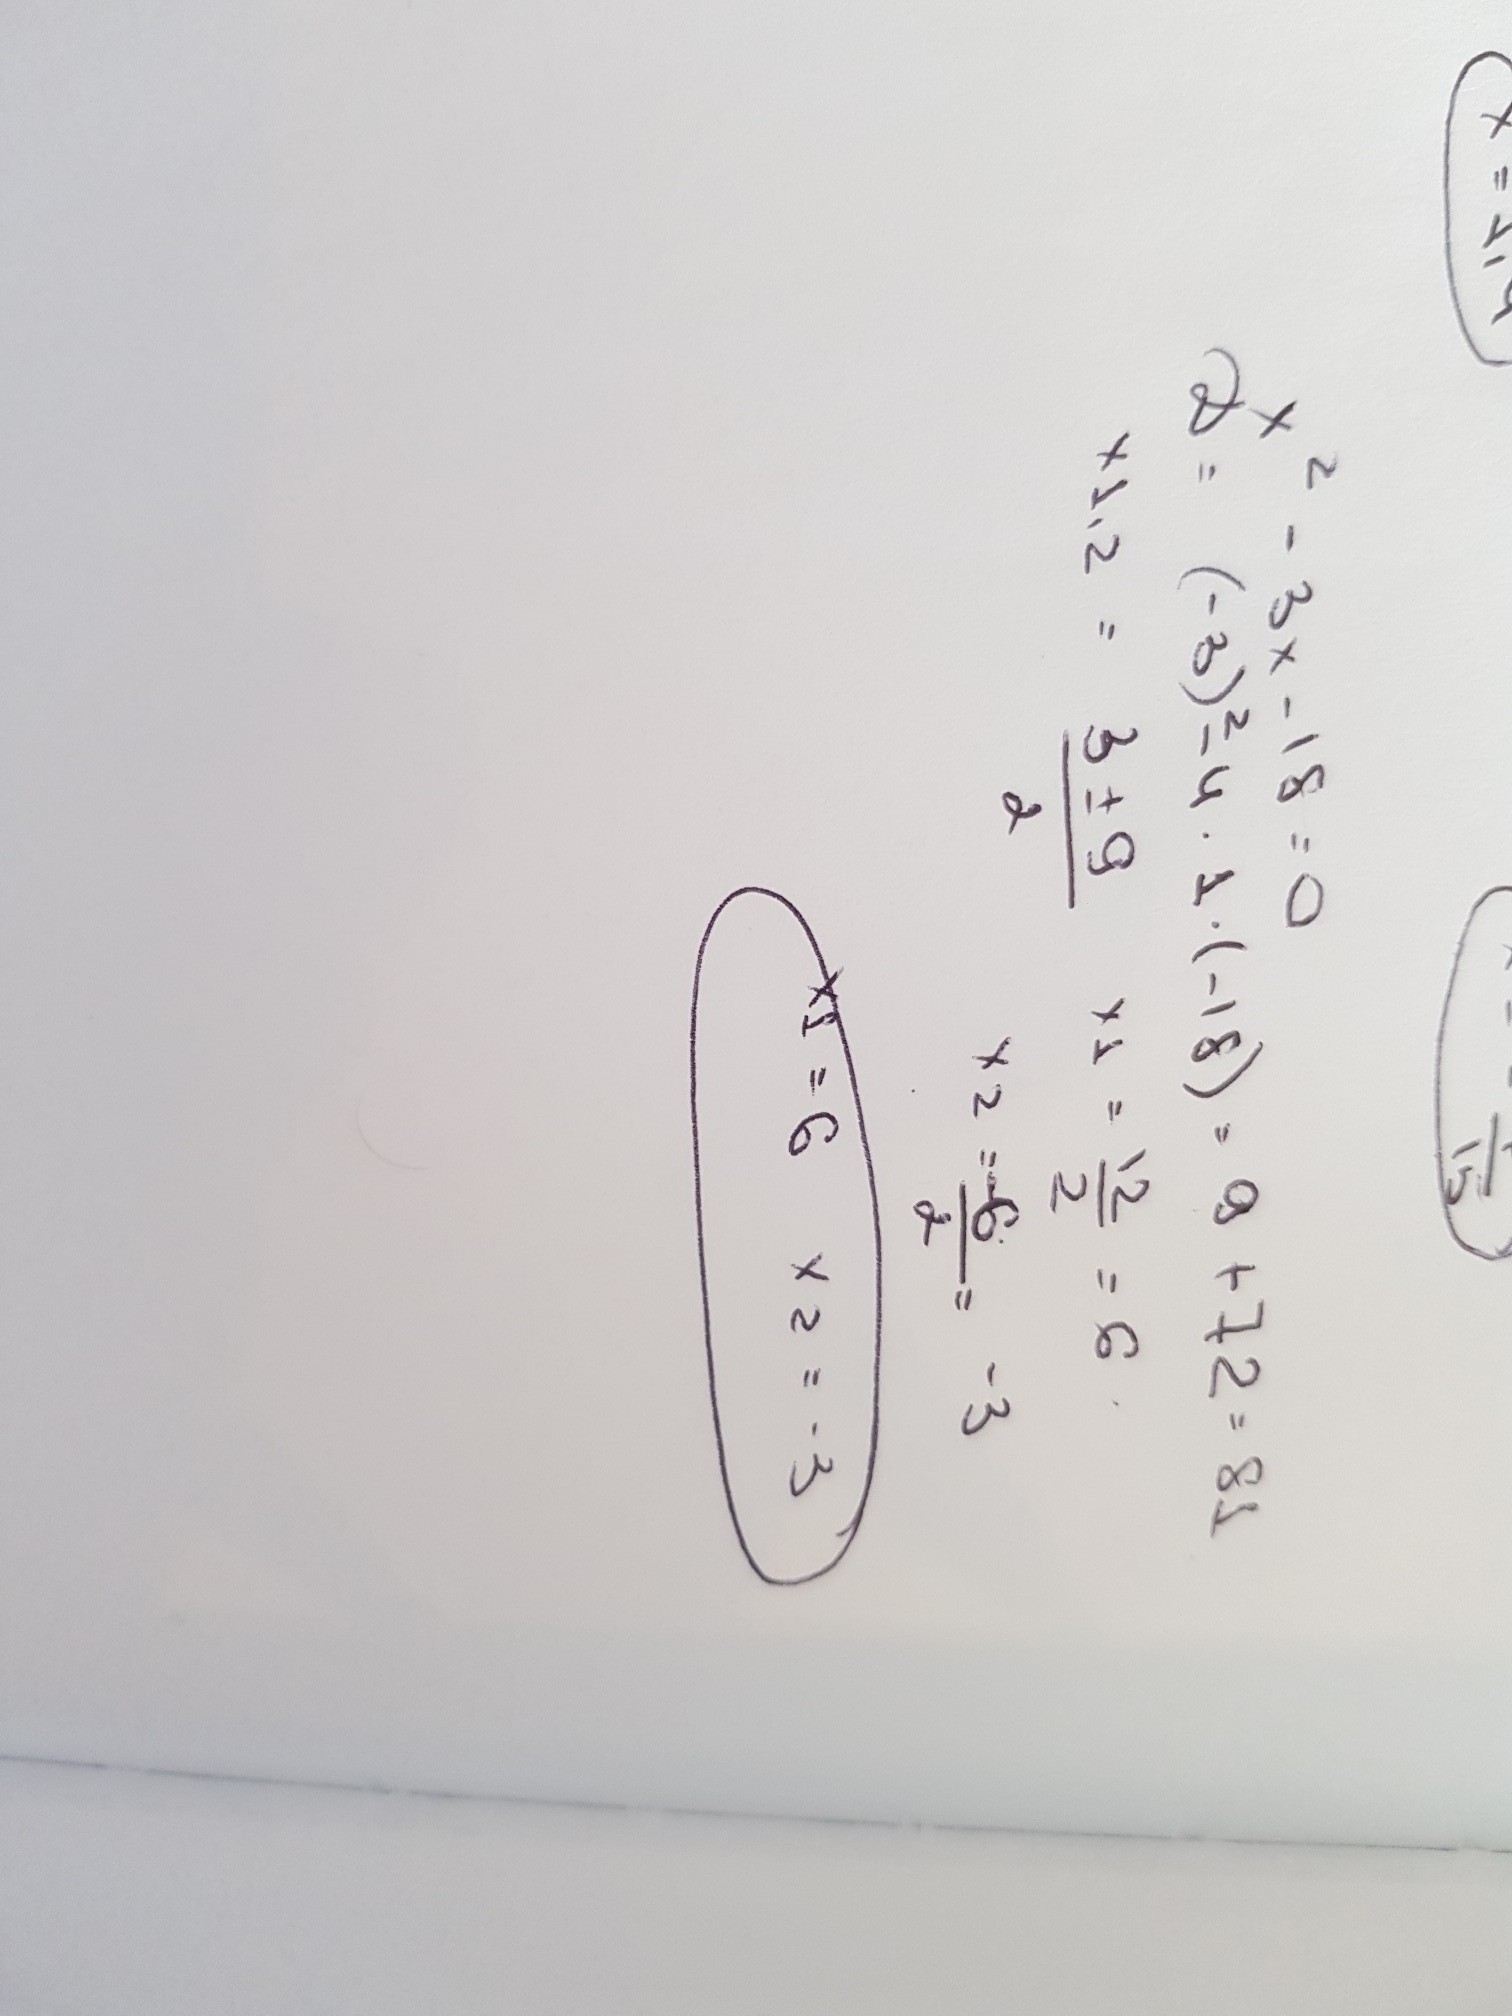 x² - 3x - 18 = 0
D = (-3)² - 4 · 1 · (-18) = 9 + 72 = 81
x1,2 = (3 ± 9)/2 x1 = 12/2 = 6
x2 = -6/2 = -3
x1 = 6 x2 = -3